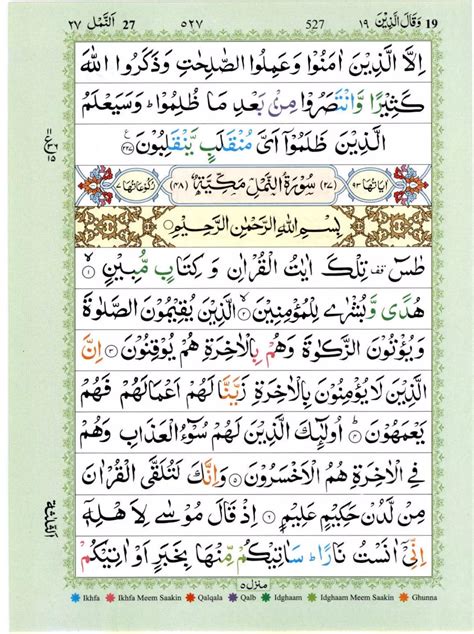 ٢٧ اَلنَّمْل 27 ٥٢٧ 527 وَقَالَ الَّذِيْنَ ١٩ 19
اِلَّا الَّذِيْنَ اٰمَنُوْا وَعَمِلُوا الصّٰلِحٰتِ وَذَكَرُوا اللّٰهَ
كَثِيْرًا وَّانْتَصَرُوْا مِنْۢ بَعْدِ مَا ظُلِمُوْا ؕ وَسَيَعْلَمُ
الَّذِيْنَ ظَلَمُوْۤا اَىَّ مُنْقَلَبٍ يَّنْقَلِبُوْنَ ۟ ٢٢٧
اٰيَاتُهَا ٩٣ (٢٧) سُوْرَةُ النَّمْلِ مَكِّيَّةٌ (٤٨) رُكُوْعَاتُهَا ٧
بِسْمِ اللّٰهِ الرَّحْمٰنِ الرَّحِيْمِ
طٰسٓ ۚ تِلْكَ اٰيٰتُ الْقُرْاٰنِ وَ كِتَابٍ مُّبِيْنٍ ۙ ١
هُدًى وَّ بُشْرٰى لِلْمُؤْمِنِيْنَ ۙ ٢ الَّذِيْنَ يُقِيْمُوْنَ الصَّلٰوةَ
وَ يُؤْتُوْنَ الزَّكٰوةَ وَهُمْ بِالْاٰخِرَةِ هُمْ يُوْقِنُوْنَ ٣ اِنَّ
الَّذِيْنَ لَا يُؤْمِنُوْنَ بِالْاٰخِرَةِ زَيَّنَّا لَهُمْ اَعْمَالَهُمْ فَهُمْ
يَعْمَهُوْنَ ؕ ٤ اُولٰٓئِكَ الَّذِيْنَ لَهُمْ سُوْٓءُ الْعَذَابِ وَهُمْ
فِى الْاٰخِرَةِ هُمُ الْاَخْسَرُوْنَ ٥ وَاِنَّكَ لَتُلَقَّى الْقُرْاٰنَ
مِنْ لَّدُنْ حَكِيْمٍ عَلِيْمٍ ٦ اِذْ قَالَ مُوْسٰى لِاَهْلِهٖۤ
اِنِّىْۤ اٰنَسْتُ نَارًا ؕ سَاٰتِيْكُمْ مِّنْهَا بِخَبَرٍ اَوْ اٰتِيْكُمْ
منزل ٥
Ikhfa Ikhfa Meem Saakin Qalqala Qalb Idghaam Idghaam Meem Saakin Ghunna